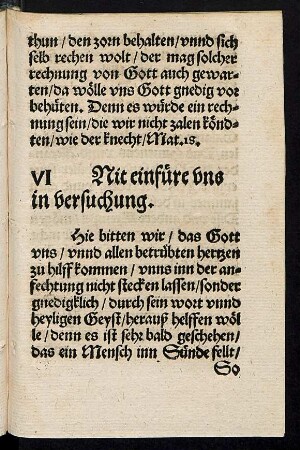 thun/den zorn behalten/vnnd sich
selb rechen wolt/der mag solcher
rechnung von Gott auch gewar-
ten/da wölle vns Gott gnedig vor
behüten. Denn es würde ein rech-
nung sein/die wir nicht zalen könd-
ten/wie der knecht/Mat.18.
VI Nit einfüre vns
in versuchung.
Hie bitten wir/das Gott
vns/vnnd allen betrübten hertzen
zu hilff kommen/vnns inn der an-
fechtung nicht stecken lassen/sonder
gnedigklich/durch sein wort vnnd
heyligen Geyst/herauß helffen wöl
le/denn es ist sehr bald geschehen/
das ein Mensch inn Sünde fellt/
So